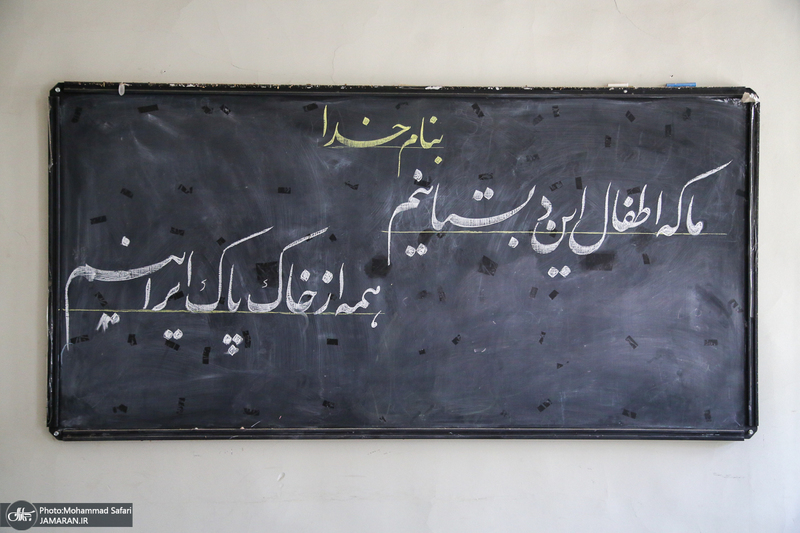 بنام خدا
ما که اطفال این دبستانیم
همه از خاک پاک ایرانیم
Photo:Mohammad Safari
JAMARAN.IR